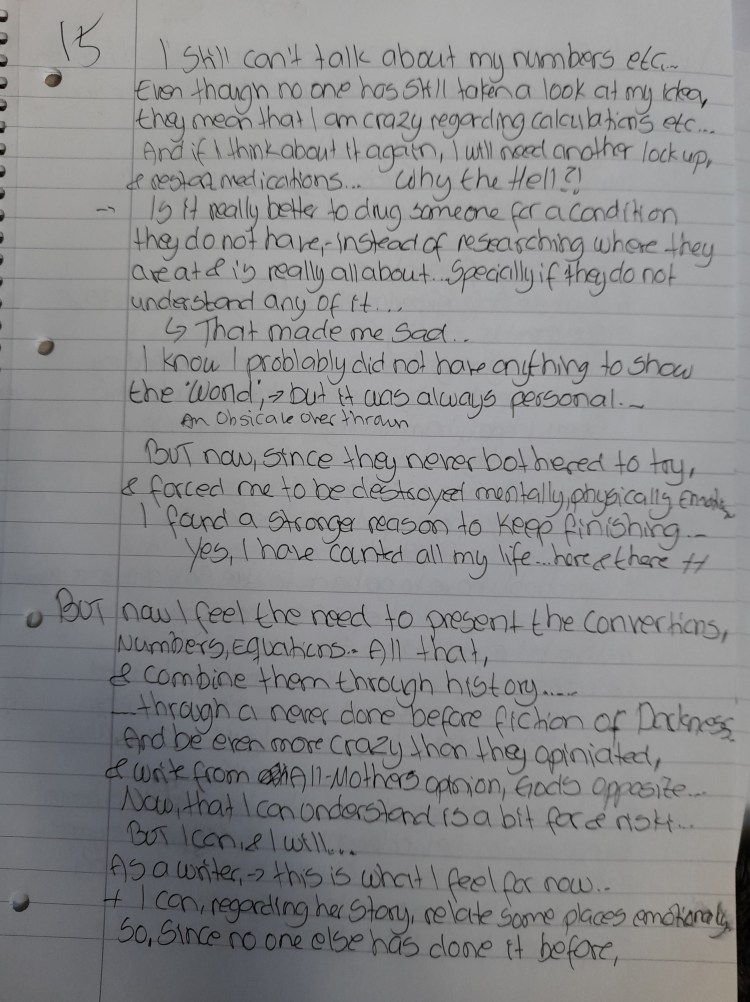 15
I still can't talk about my numbers etc...
Even though no one has still taken a look at my idea,
they mean that I am crazy regarding calculations etc...
And if I think about it again, I will need another lock up,
& restart medications... Why the Hell?!
→ Is it really better to drug someone for a condition
they do not have,- instead of researching where they
are at & is really all about... Specially if they do not
understand any of it...
↳ That made me sad..
I know I problably did not have anything to show
the 'World', → but it was always personal.~
An Obsicale over thrown
BUT now, since they never bothered to try,
& forced me to be destroyed mentally, physically
I found a stronger reason to keep finishing..
Yes, I have canted all my life... here & there
BUT now I feel the need to present the Convertions,
Numbers, Equations.. All that,
& combine them through history....
through a never done before fiction of Darkness
And be even more crazy than they opiniated,
& write from All-Mothers opinion, God's opposite...
Now, that I can understand is a bit
BUT I can, & I will...
As a writer, → this is what I feel for now..
+ I can, regarding her story, relate some places emotionaly
So, Since no one else has done it before,